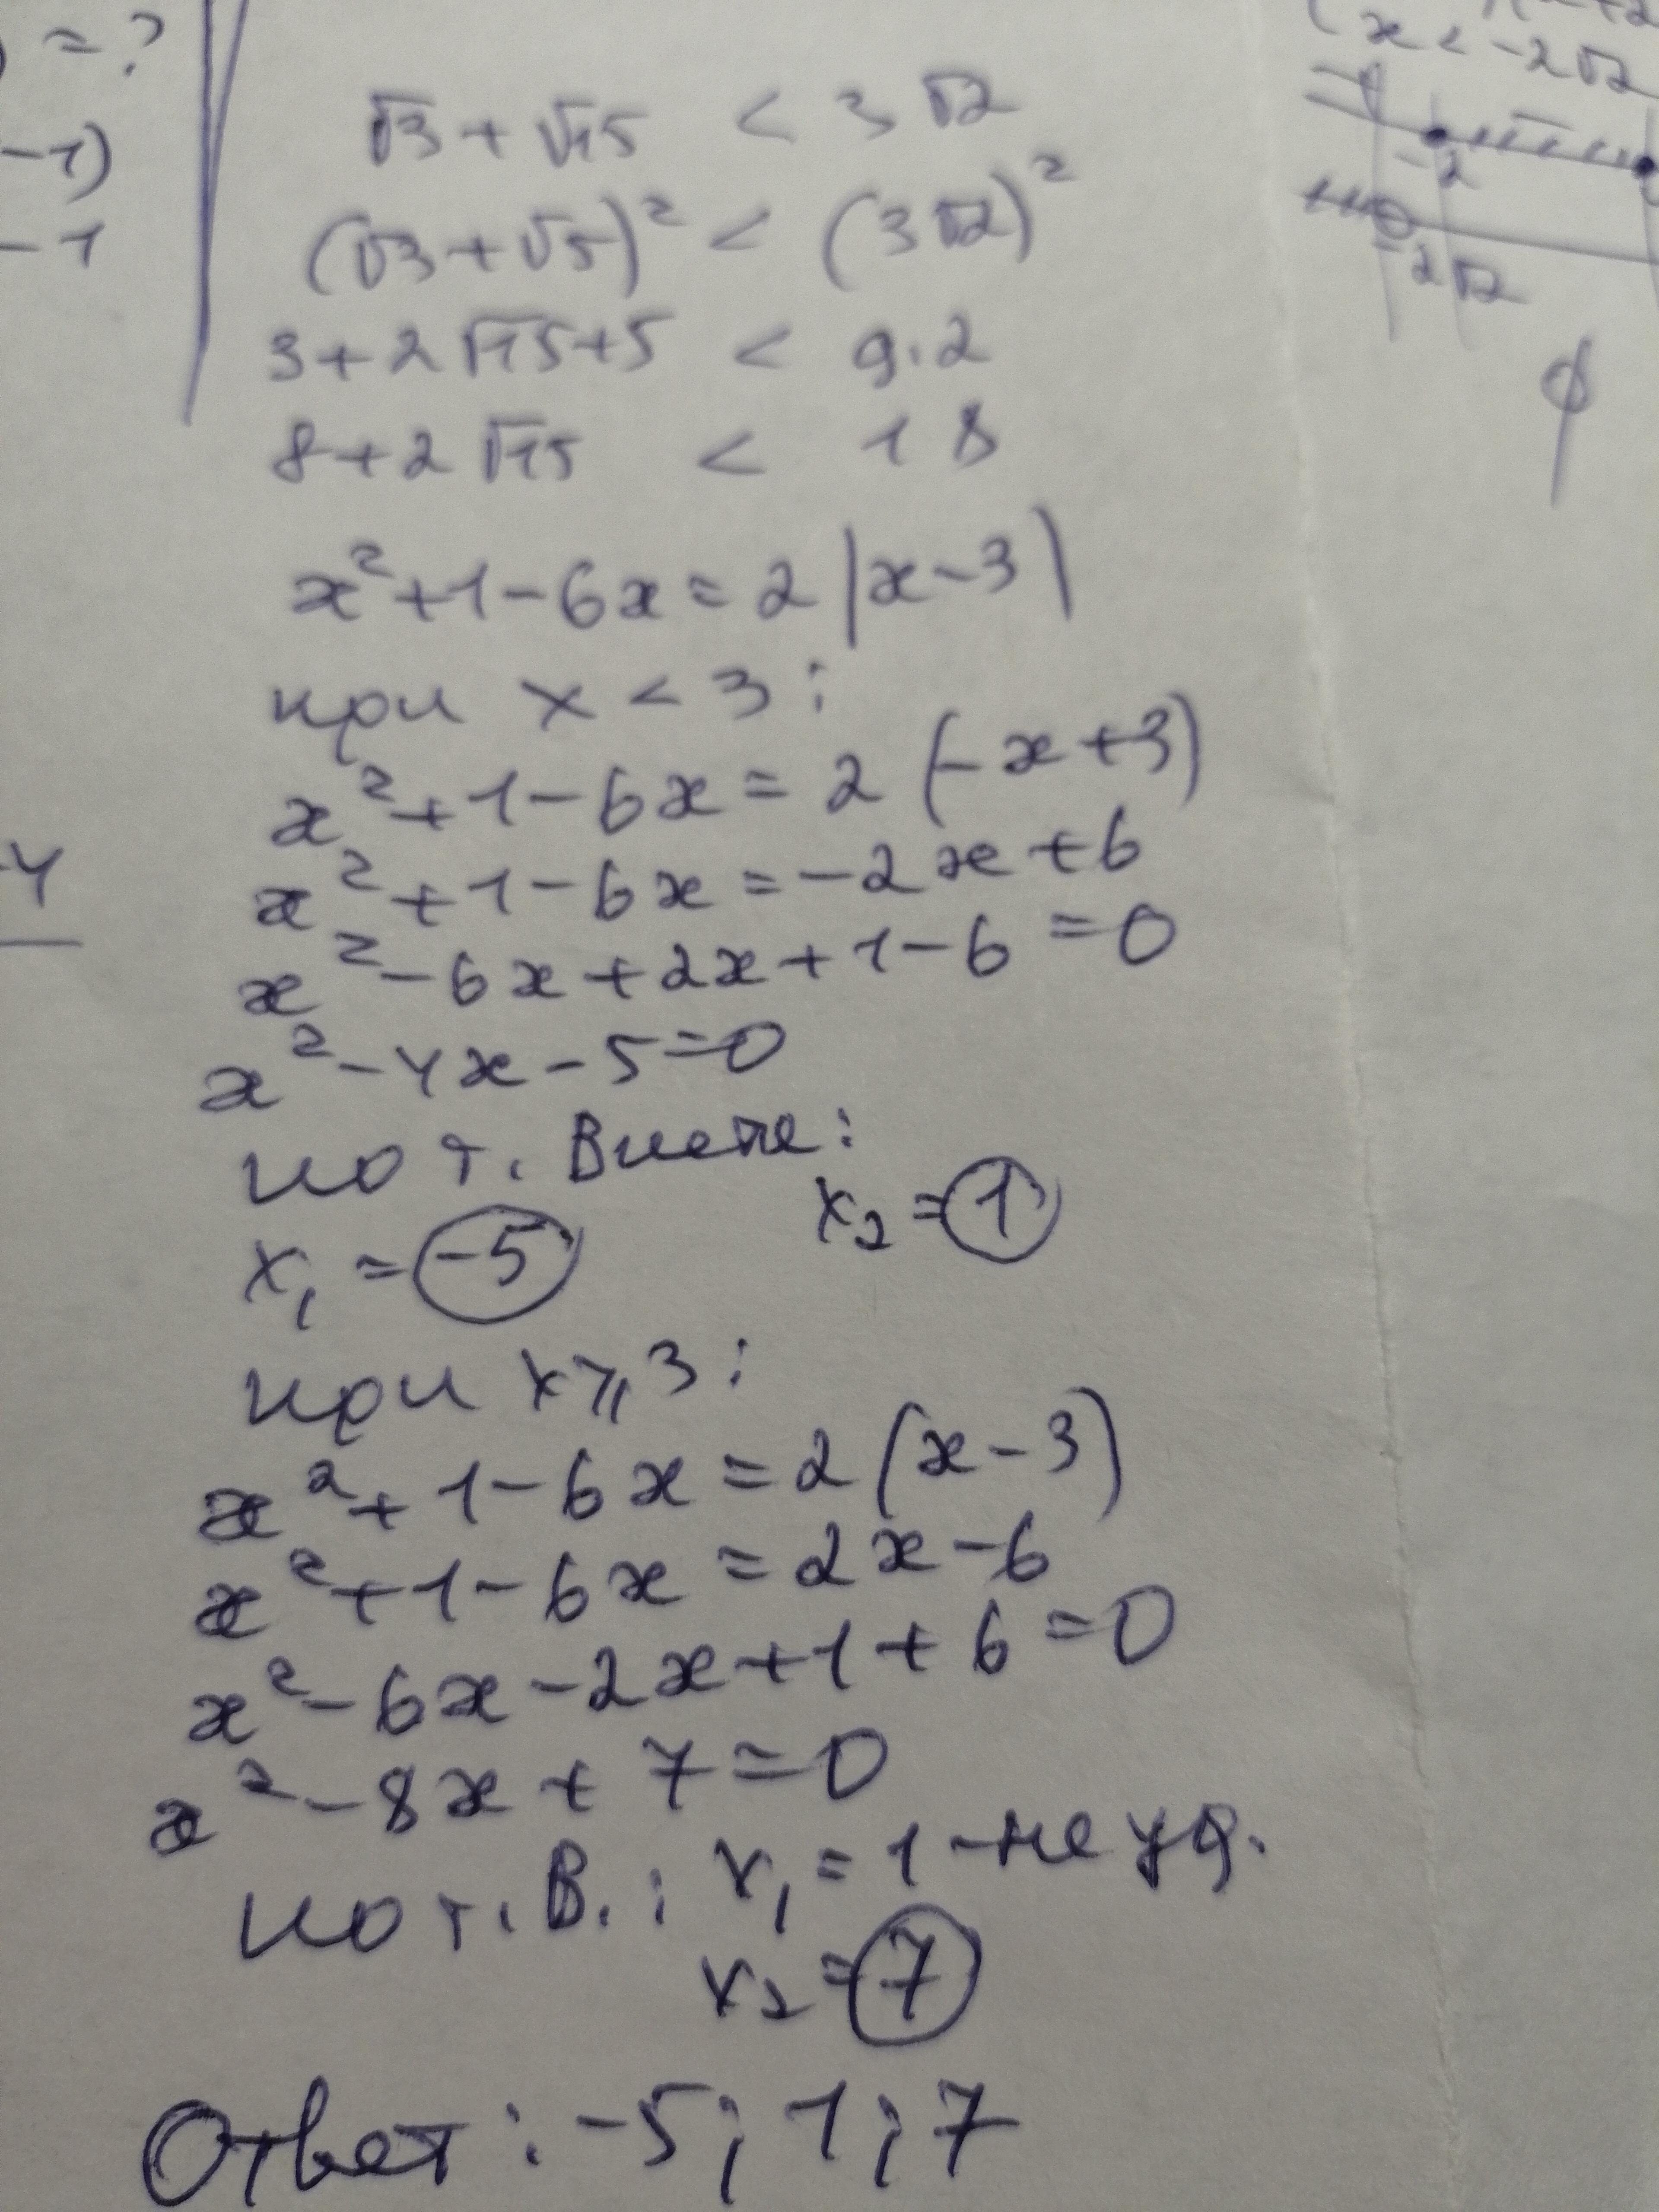 ) = ?
-1)
-1
√3 + √15 < 3√2
(√3 + √5)² < (3√2)²
3 + 2√15 + 5 < 9·2
8 + 2√15 < 18
x² + 1 - 6x = 2|x - 3|
при x < 3:
x² + 1 - 6x = 2(-x + 3)
x² + 1 - 6x = -2x + 6
x² - 6x + 2x + 1 - 6 = 0
x² - 4x - 5 = 0
по т. Виета:
x₁ = -5 x₂ = 1
при x ⩾ 3:
x² + 1 - 6x = 2(x - 3)
x² + 1 - 6x = 2x - 6
x² - 6x - 2x + 1 + 6 = 0
x² - 8x + 7 = 0
по т. В.: x₁ = 1 - не уд.
x₂ = 7
Ответ: -5; 1; 7
-4
x < -2√2
-2
-2√2
∅